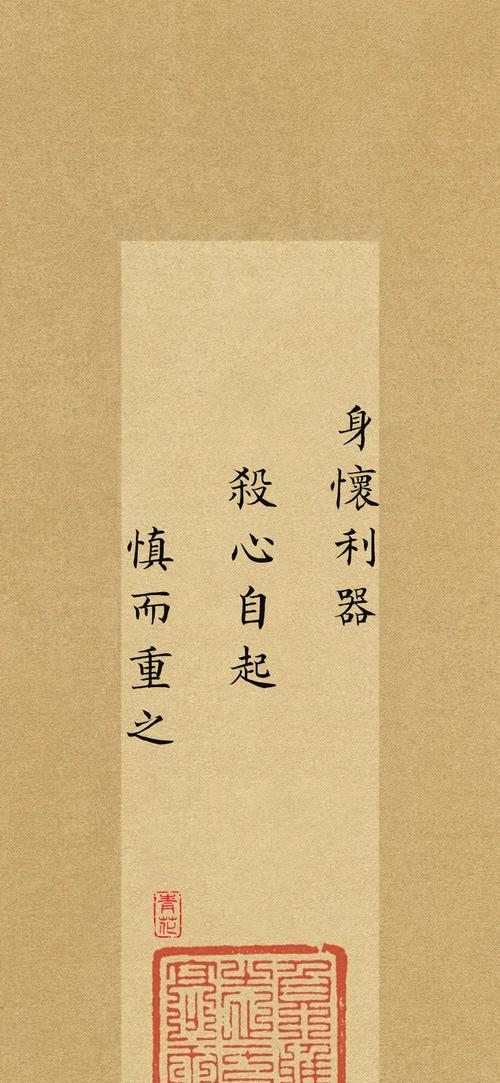 身懷利器
殺心自起
慎而重之
青花